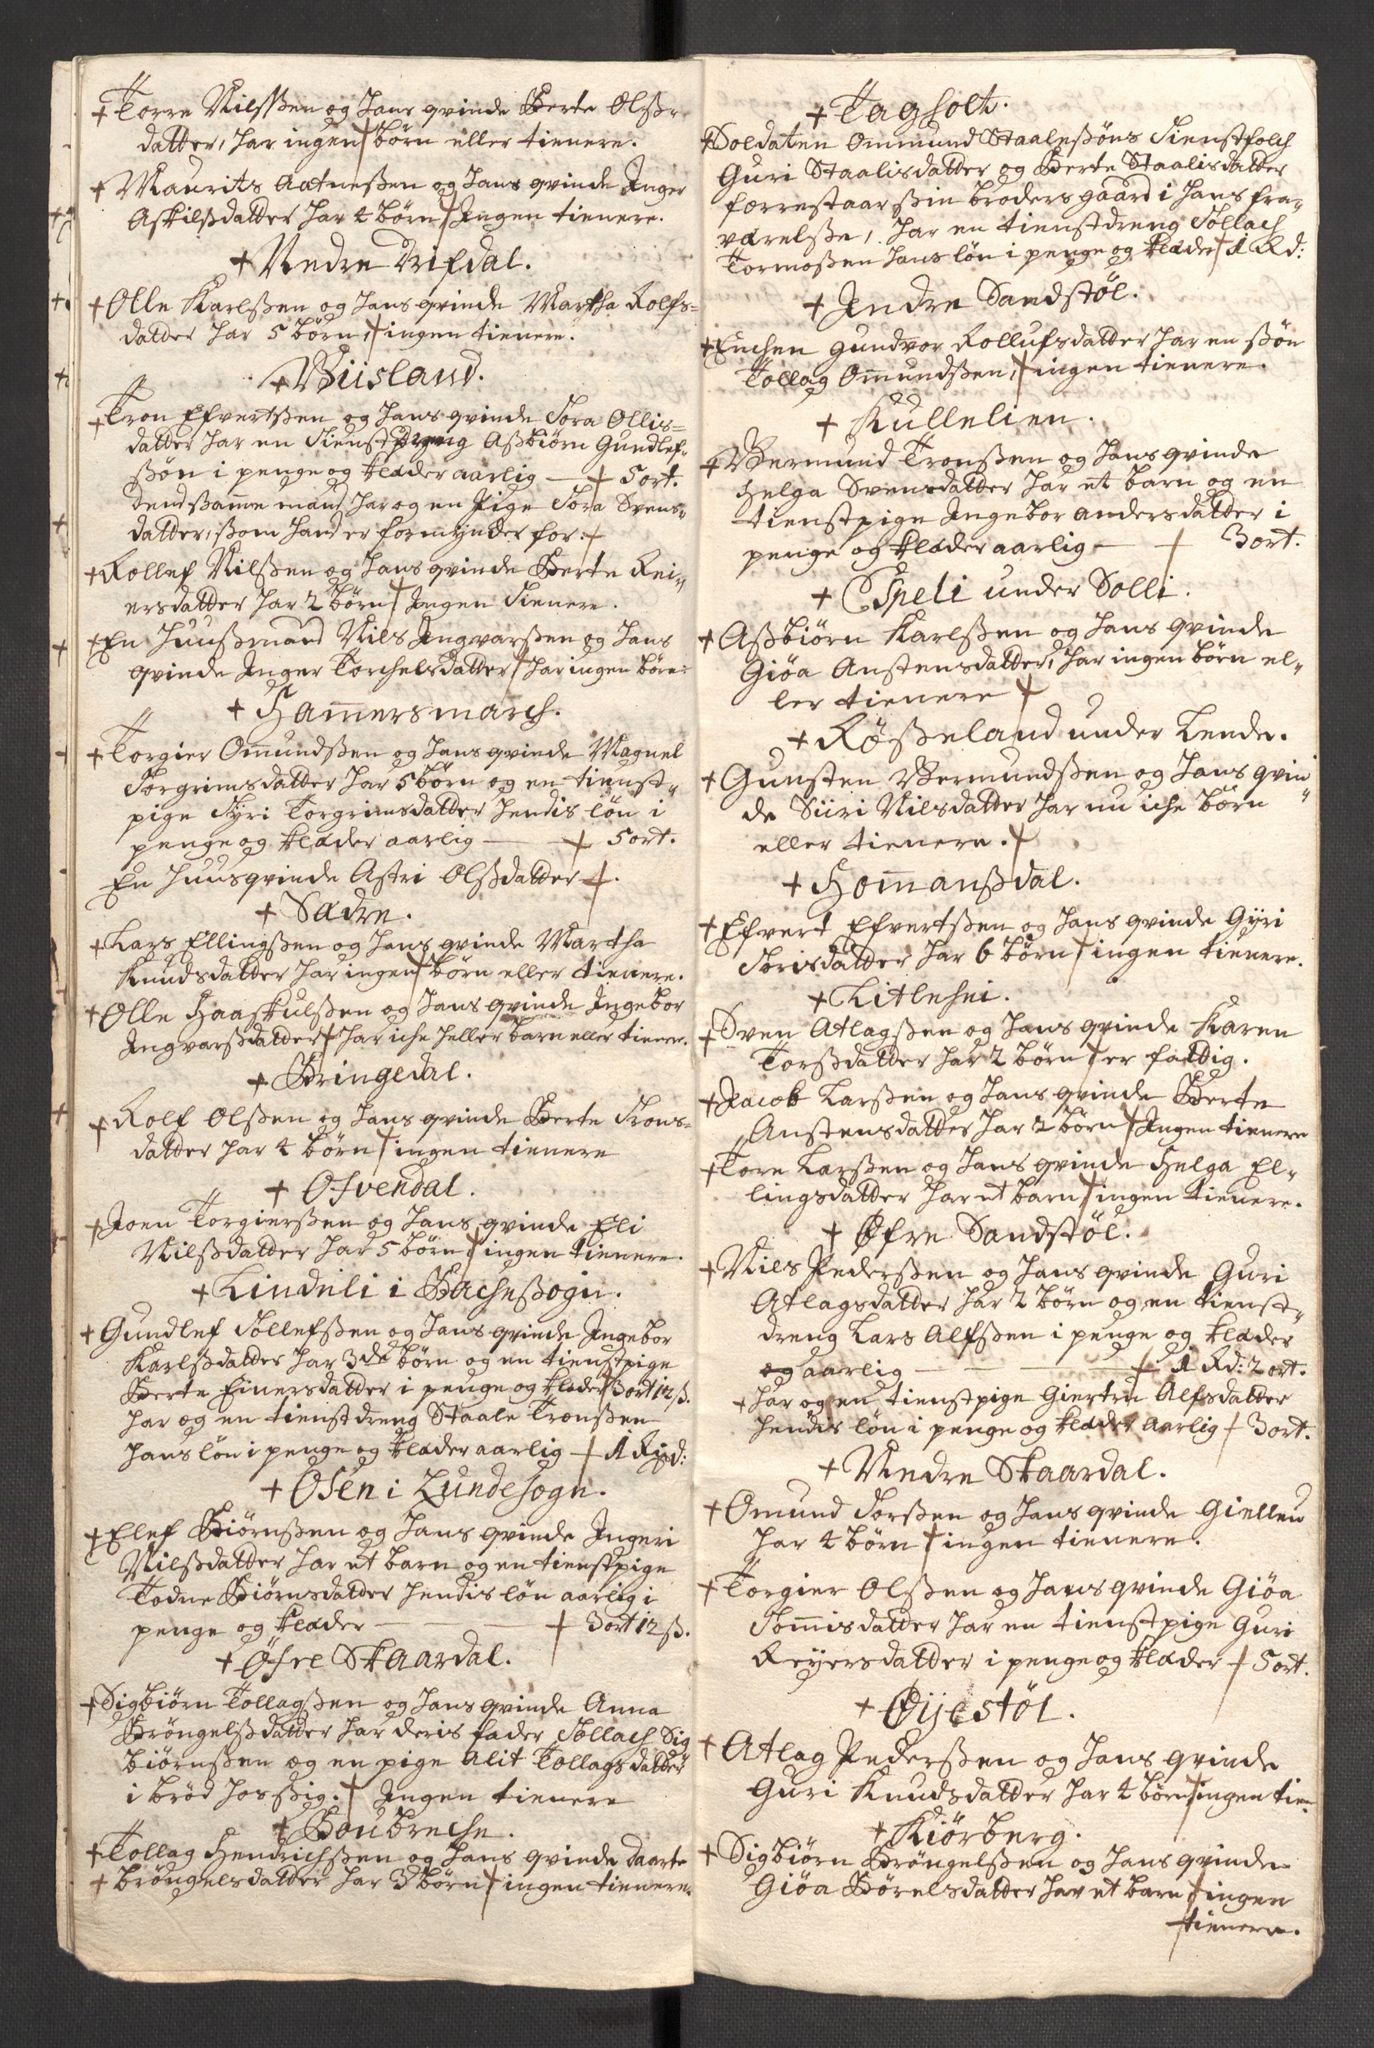 + Torre Nilssen og Hans qvinde Berte Olss-
datter, har ingen + børn eller tienere.
+ Maurits Aatnessen og Hans qvinde Inger
Askilsdatter har 4 børn + Ingen tienere.
+ Nedre Drifdal.
+ Olle Karlssen og Hans qvinde Martha Rolfs-
datter har 5 børn, + ingen tienere.
+ Viisland.
+ Tron Efvertssen og Hans qvinde Tora Ollis-
datter har en tienstdreng Assbiørn Gundlef-
ssøn i penge og klæder aarlig — + 5 ort.
dend samme mand har og en Pige Tora Svens-
datter, ssom hand er formynder for. +
+ Rollef Nilssen og Hans qvinde Berte Rei-
ersdatter har 2 børn + Ingen tienere.
+ En Huussmand Niels Ingvarssen og Hans
qvinde Inger Torchelsdatter + har ingen børn
+ Hamersmarch.
+ Torgier Omundssen og Hans qvinde Magnel
Torgrimsdatter har 5 børn og en tienst-
pige Siri Torgrimsdatter hendis løn i
penge og klæder aarlig — + 5 ort.
En Huusqvinde Astri Olssdatter +.
+ Sædre.
+ Lars Ellingssen og Hans qvinde Martha
Knudsdatter har ingen + børn eller tienere.
+ Olle Haaskulssen og Hans qvinde Ingebor
Ingvarssdatter + har iche heller barn eller tienere.
+ Bringedal.
+ Rolf Olssen og Hans qvinde Berte Trons-
datter har 4 børn + ingen tienere
+ Ofvendal.
+ Joen Torgierssen og Hans qvinde Eli
Nilssdatter har 5 børn + ingen tienere.
+ Lindeli i Bachessogn.
+ Gundlef Tollefssen og Hans qvinde Ingebor
Karlssdatter har 3de børn og en tienstpige
Berte Einersdatter i penge og klæder + 3 ort 12 ß.
har og en tienstdreng Staale Tronssen
hans løn i penge og klæder aarlig — + 1 Rixd:
+ Osen i Lundesogn.
+ Elef Biørnssen og Hans qvinde Ingeri
Nilssdatter har et barn og en tienstpige
Todne Biørnsdatter hendis løn aarlig i
penge og klæder — + 3 ort 12 ß.
+ Øfre Skaardal.
+ Sigbiørn Tollagssen og Hans qvinde Anna
Brøngelssdatter har deris fader Tollach Sig
biørnssen og en pige Alit Tollagsdatter
i brød hos sig. + Ingen tienere
+ Boubreche.
+ Tollag Hendrichssen og Hans qvinde Daarte
+ Brøngelsdatter har 3 børn + ingen tienere.
+ Tagholt.
+ Soldaten Ommund Staalessøns tienstfolch
Guri Staalisdatter og Berte Staalisdatter
forrestaar ssin broders gaard i Hans fra-
værelsse, har en tienstdreng Tollach
Tormossen hans løn i penge og klæder + 1 Rd:
+ Indre Sandstøl.
+ Enchen Gundvor Rollufsdatter har en ssøn
Tollag Omundssen, + ingen tienere.
+ Kullelien.
+ Vermund Tronssen og Hans qvinde
Helga Svensdatter har et barn og en
tienstpige Ingebor Andersdatter i
penge og klæder aarlig — + 3 ort.
+ Espeli under Solli.
+ Assbiørn Karlssen og Hans qvinde
Giøa Anstensdatter, har ingen børn el-
ler tienere +
+ Røsseland under Lende.
+ Gunsten Vermundssen og Hans qvin-
de Siiri Nilsdatter har nu iche børn
eller tienere. +
+ Homanssdal.
+ Efvert Efvertssen og Hans qvinde Gyri
Torisdatter har 6 børn + ingen tienere.
+ Litlehei.
+ Sven Atlagssen og Hans qvinde Karen
Torssdatter har 2 børn + er fattig.
+ Jacob Larssen og Hans qvinde Berte
Anstensdatter har 2 børn + Ingen tienere
+ Tore Larssen og Hans qvinde Helga El-
lingsdatter har et barn + ingen tienere.
+ Øfre Sandstøl.
+ Niels Pederssen og Hans qvinde Guri
Atlagsdatter har 2 børn og en tienst-
dreng Lars Alfssen i penge og klæder
og aarlig — + 1 Rd: 2 ort.
+ har og en tienstpige Giertru Alfsdatter
hendis løn i penge og klæder aarlig + 3 ort.
+ Nedre Skaardal.
+ Omund Torssen og Hans qvinde Giellou
har 4 børn + ingen tienere.
+ Torgier Olssen og Hans qvinde Giøa
Tommisdatter har en tienstpige Guri
Reyersdatter i penge og klæder + 5 ort.
+ Øyestøl.
+ Atlag Pederssen og Hans qvinde
Guri Knudsdatter har 4 børn + ingen tien.
+ Kiørberg.
+ Sigbiørn Brøngelssen og Hans qvinde
Giøa Børelsdatter har et barn + ingen
tienere.